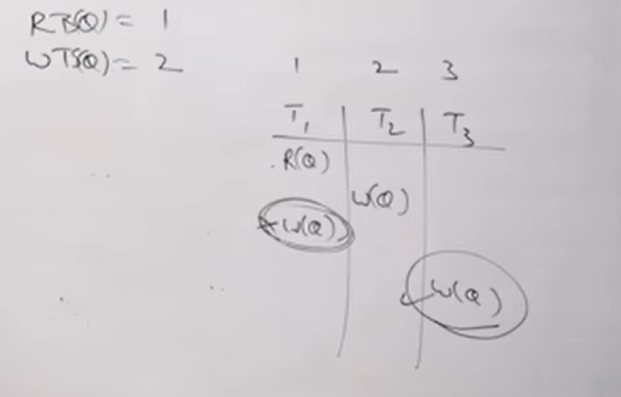 RTS(Q) = 1
WTS(Q) = 2
1 2 3
T1 T2 T3
R(Q)
W(Q)
W(Q)
W(Q)